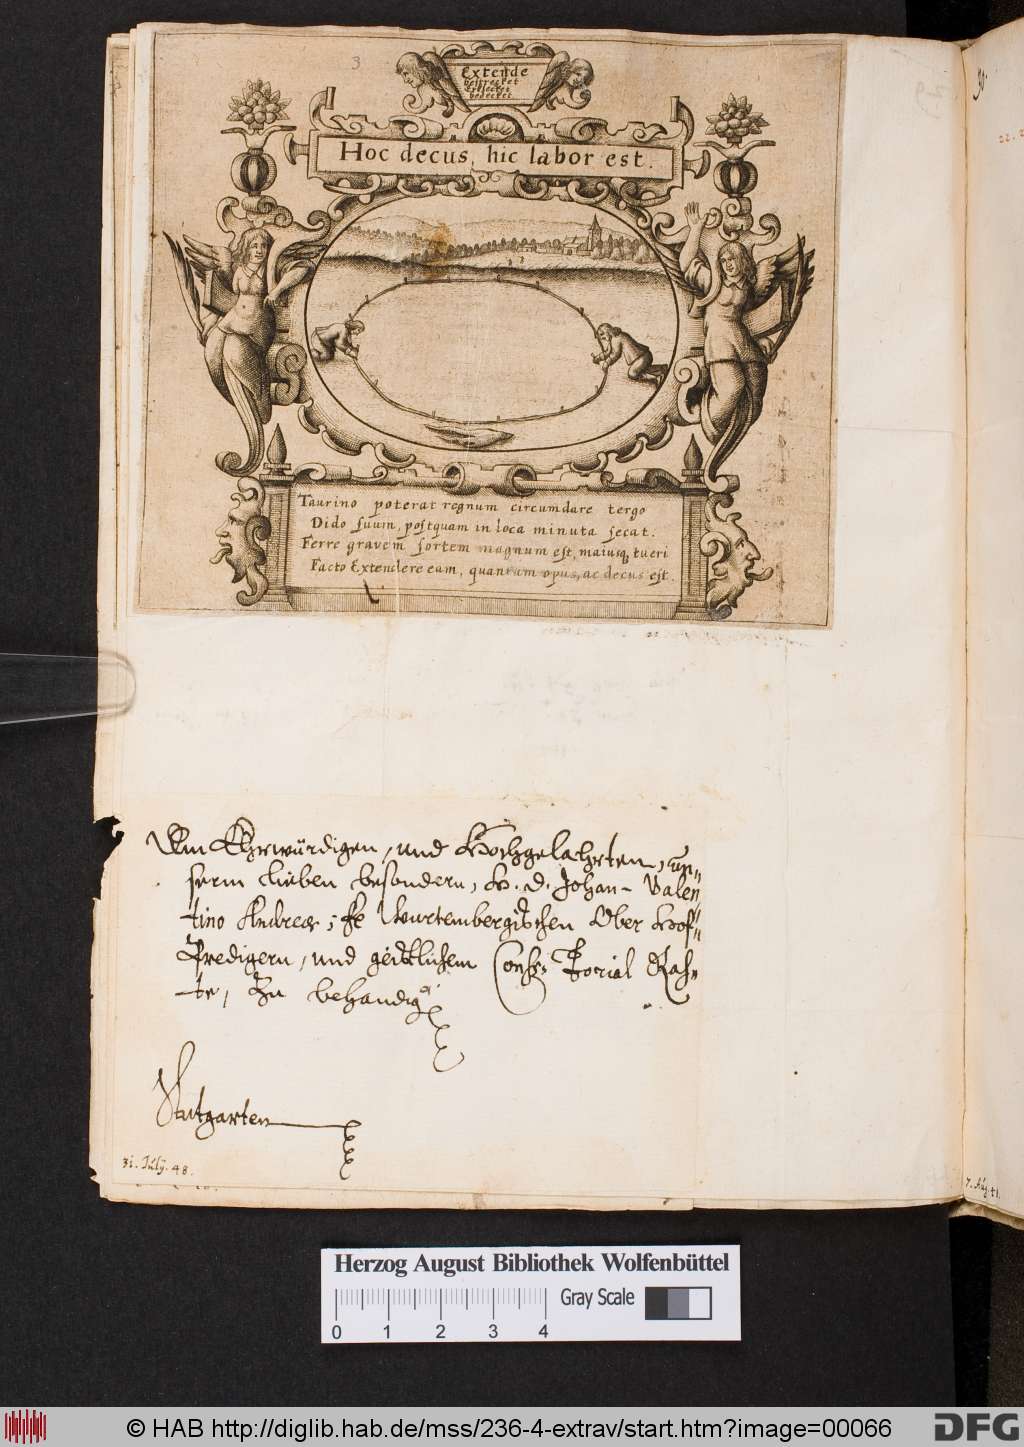 3
Extende
bestrecket
bedecket
Hoc decus, hic labor est.
Taurino poterat regnum circumdare tergo
Dido suum, postquam in loca minuta secat.
Ferre gravem sortem magnum est, maiusq, tueri
Facto Extendere eam, quantum opus, ac decus est.
Dem Ehrwürdigen, und Hochgelahrten, un=
serm lieben besondern, H. D. Johan= Valen=
tino Andreæ, Wurtembergischen Ober Hof=
Predigern, und geistlichem Consis= torial Rah=
te, zu behandig
Stutgarten
31. Julÿ. 48.
7. Aug. 51.
Herzog August Bibliothek Wolfenbüttel
Gray Scale
0 1 2 3 4
© HAB http://diglib.hab.de/mss/236-4-extrav/start.htm?image=00066
DFG